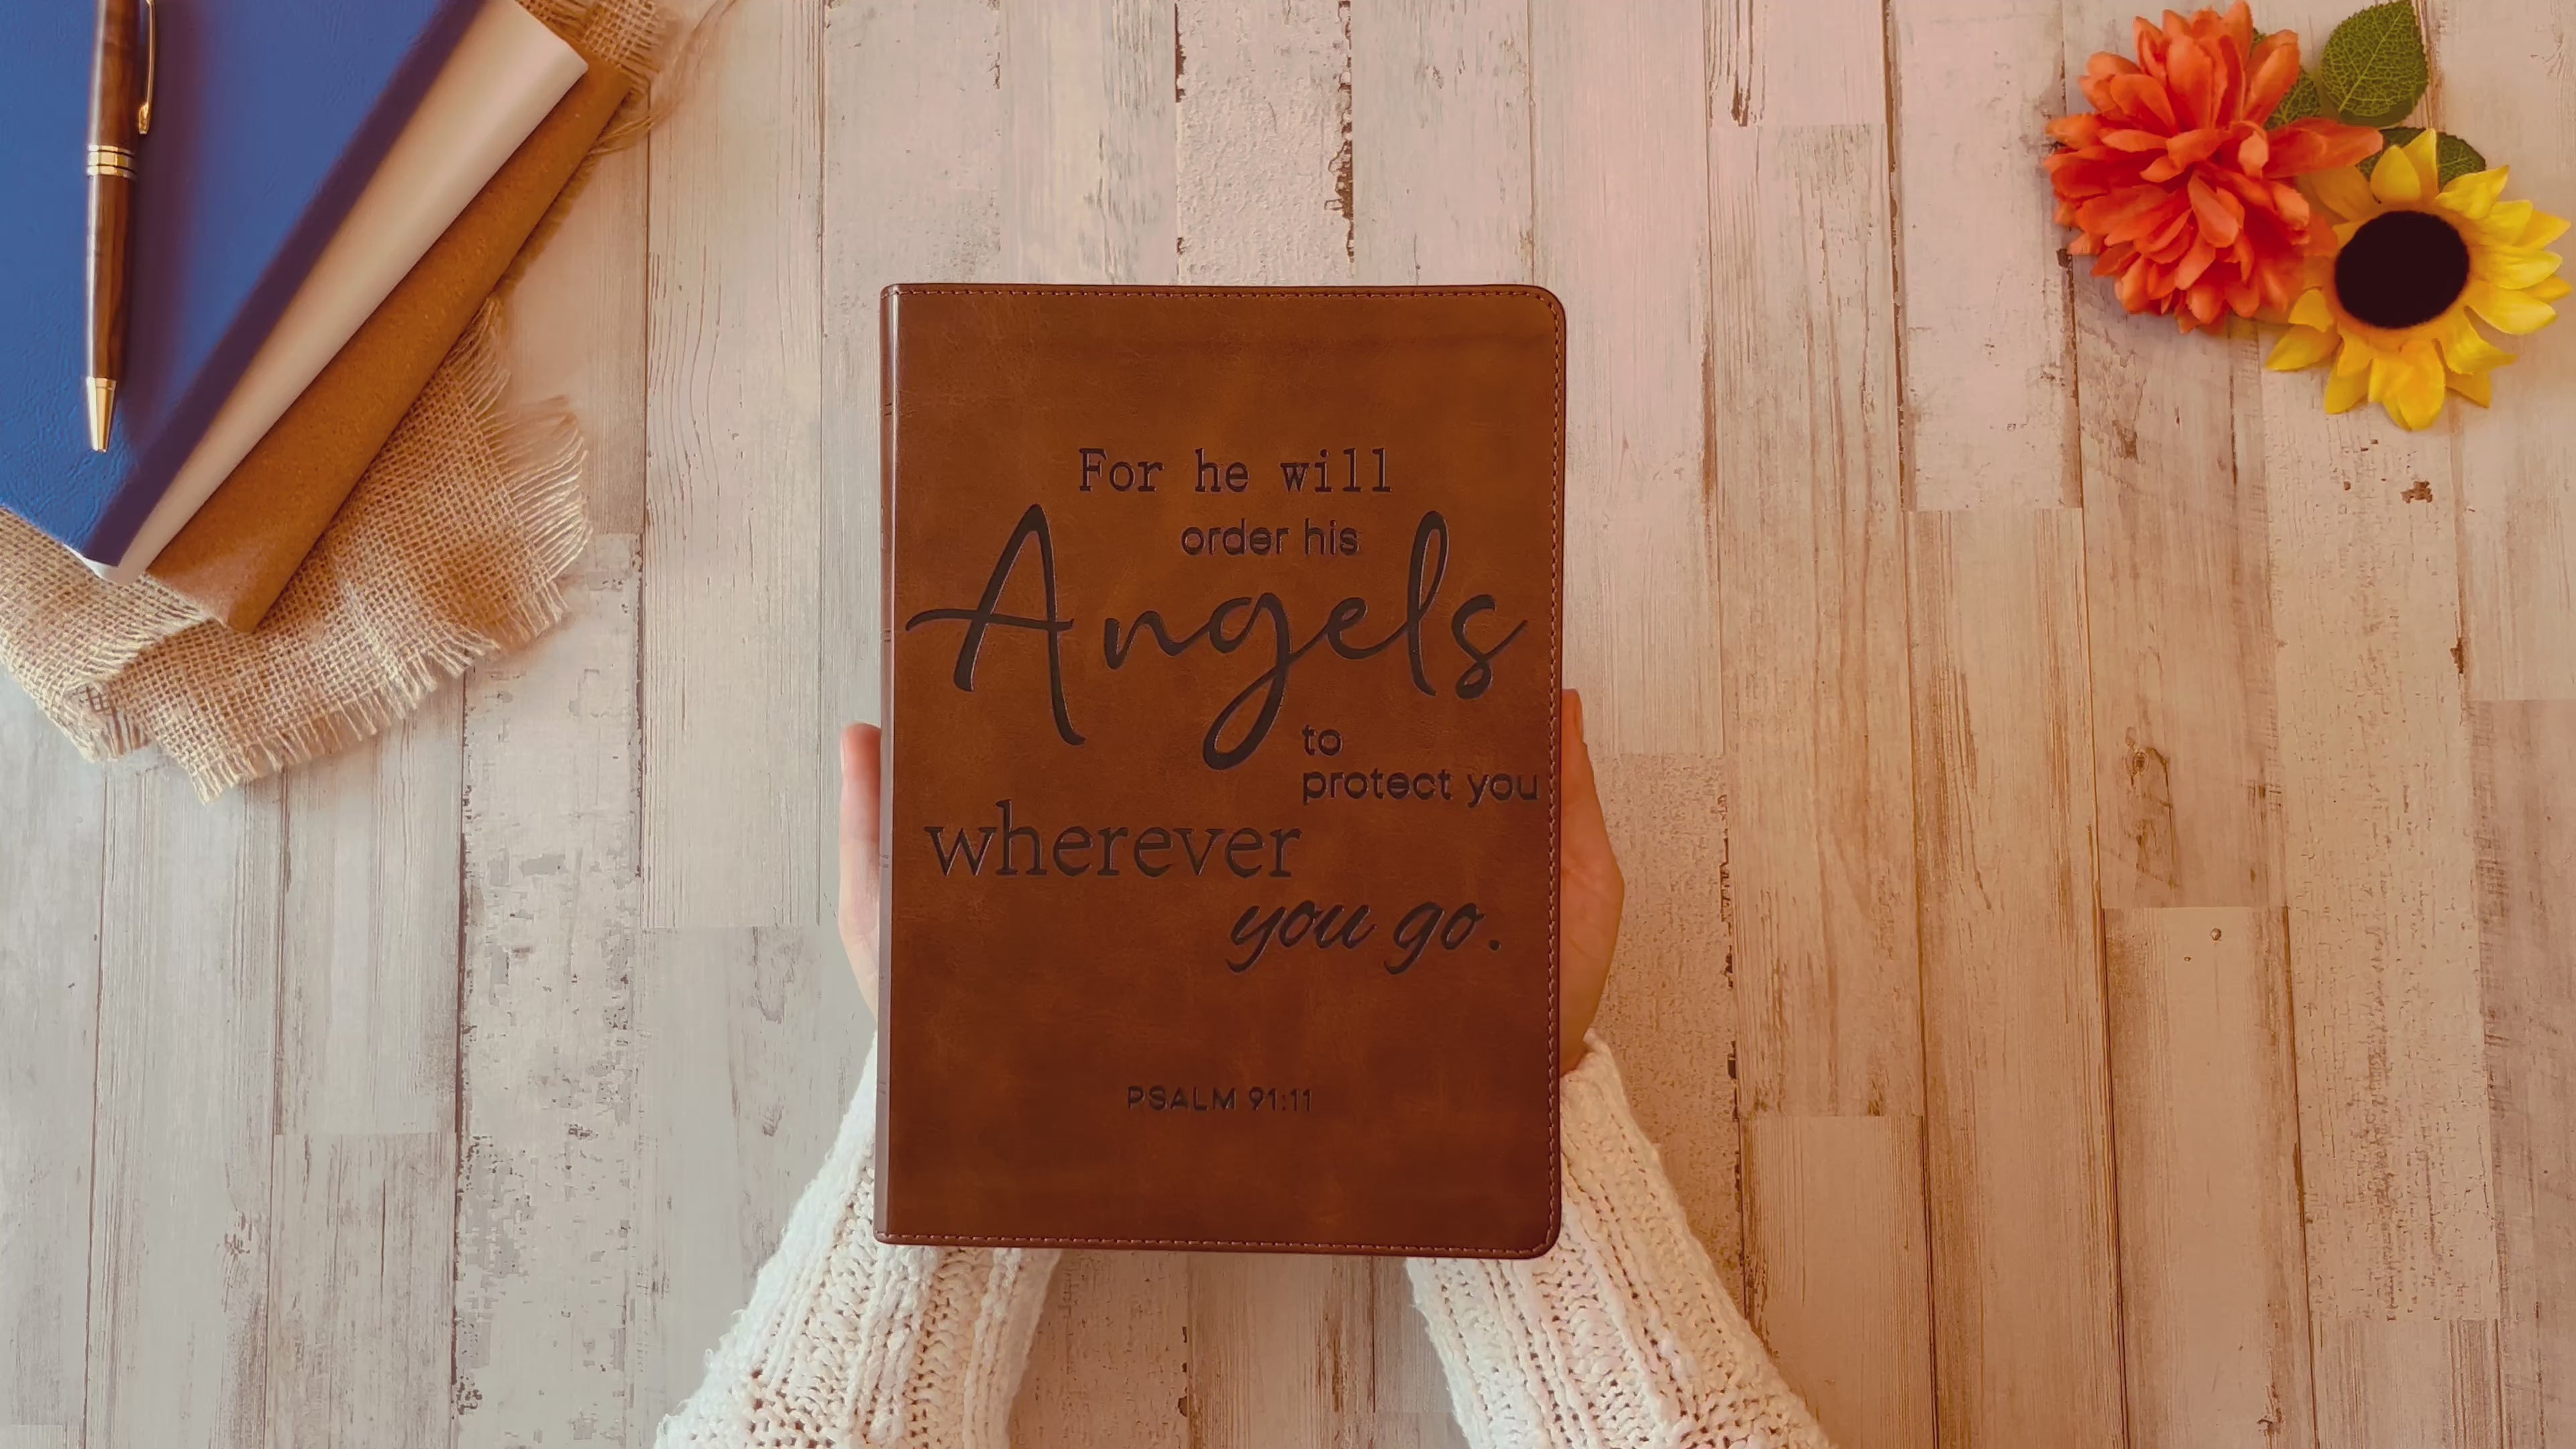 For he will
order his
Angels
to
protect you
wherever
you go.
PSALM 91:11